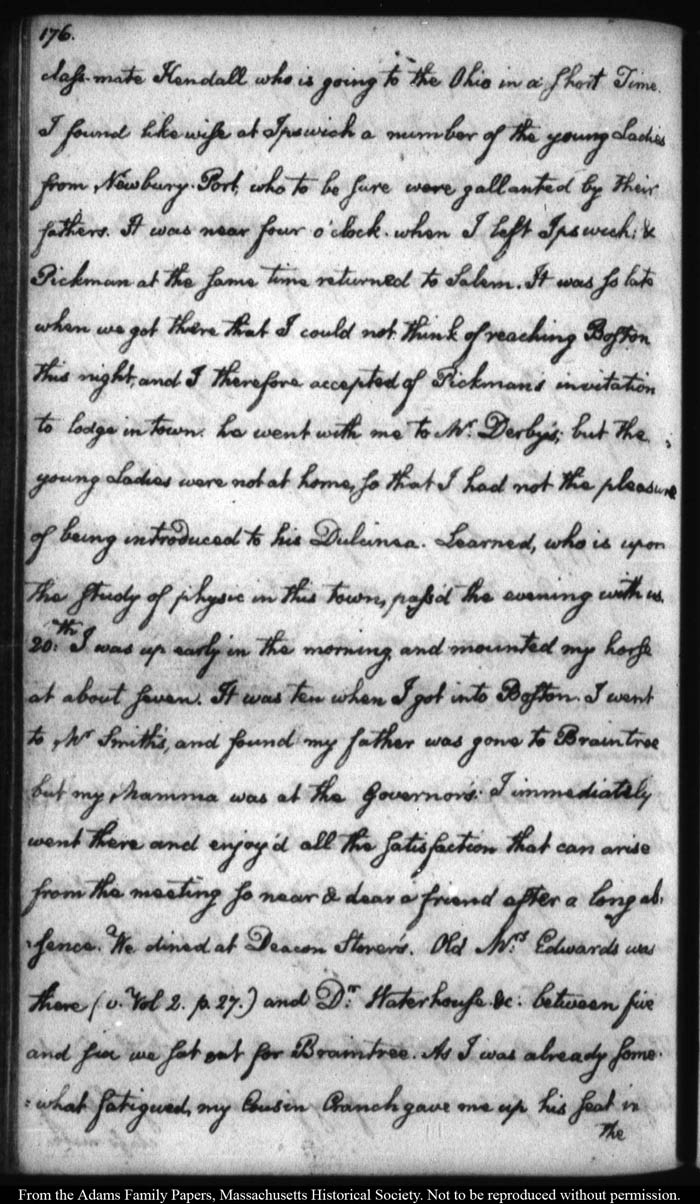 176.
class-mate Kendall who is going to the Ohio in a short Time.
I found likewise at Ipswich a number of the young Ladies
from Newbury-Port, who to be sure were gallanted by their
fathers. It was near four o'clock when I left Ipswich: &
Pickman at the same time returned to Salem. It was so late
when we got there that I could not think of reaching Boston
this night, and I therefore accepted of Pickman's invitation
to lodge in town. he went with me to Mr. Derby's; but the
young Ladies were not at home, so that I had not the pleasure
of being introduced to his Dulcinea. Learned, who is upon
the study of physic in this town, pass'd the evening with us.
20:th I was up early in the morning and mounted my horse
at about seven. It was ten when I got into Boston. I went
to Mr Smith's, and found my father was gone to Braintree
but my Mamma was at the Governor's: I immediately
went there and enjoy'd all the satisfaction that can arise
from the meeting so near & dear a friend after a long ab-
-sence. We dined at Deacon Storer's. Old Mrs. Edwards was
there (v. Vol 2. p. 27.) and Dr. Waterhouse &c. between five
and six we set out for Braintree. As I was already some-
=what fatigued, my Cousin Cranch gave me up his seat in
the
From the Adams Family Papers, Massachusetts Historical Society. Not to be reproduced without permission.